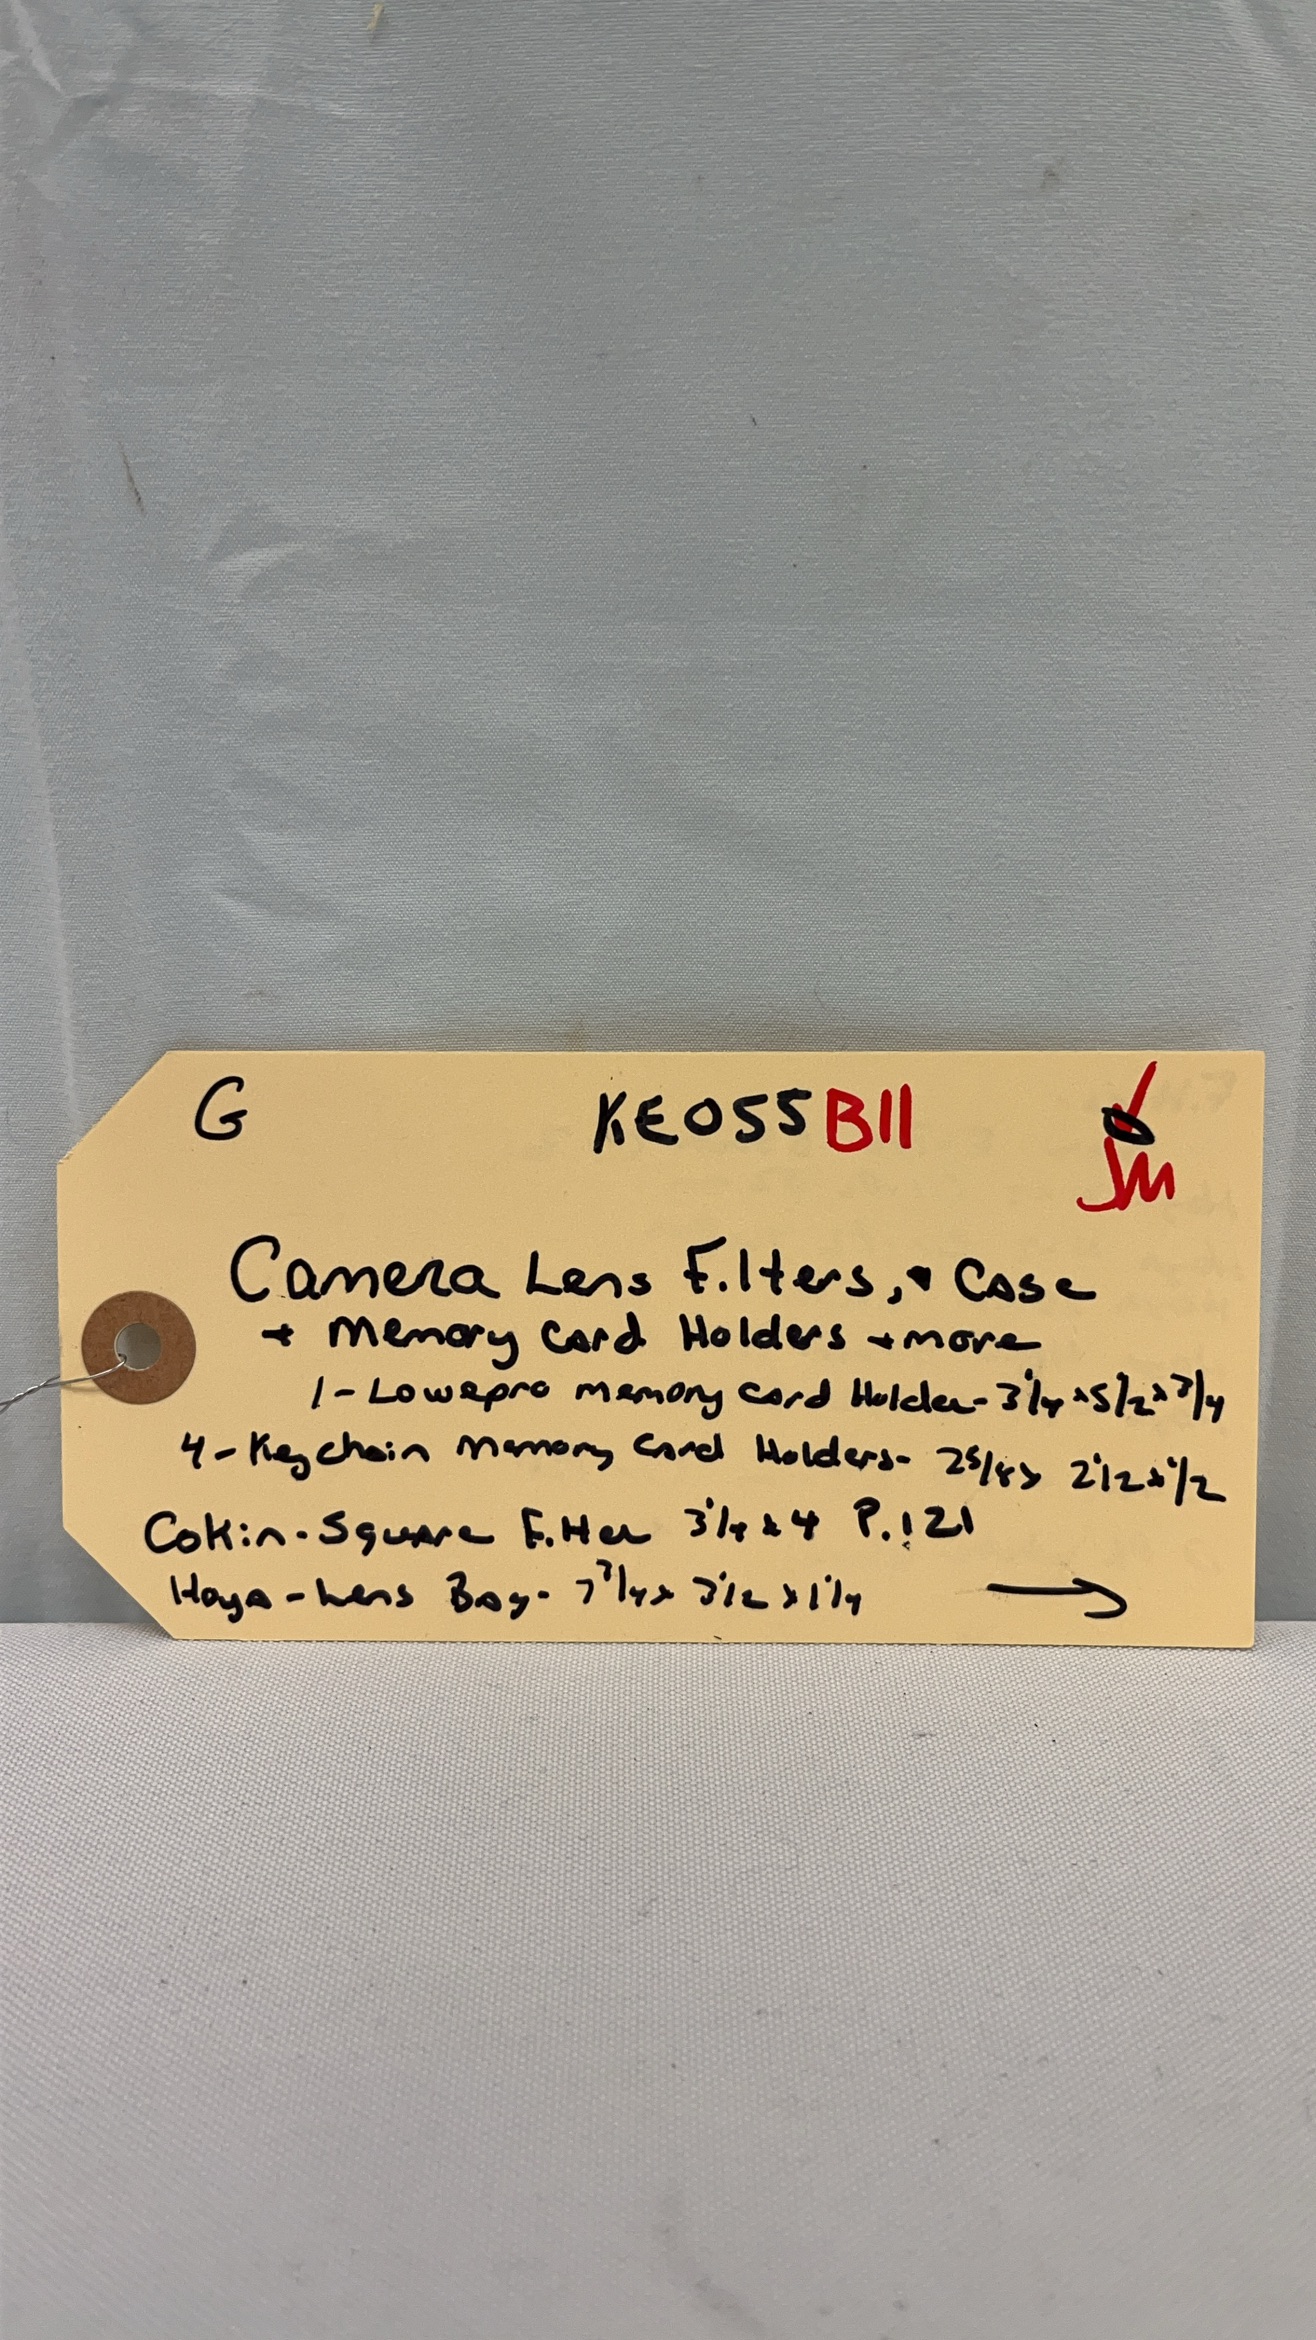 G KE055B11
JM
Camera Lens Filters, Case
+ Memory Card Holders + more
1 - Lowepro memory card Holder - 3 1/4 x 5 1/2 x 3/4
4 - Keychain Memory Card Holders - 2 5/8 x 2 1/2 x 1/2
Cokin - Square Filter 3 1/4 x 4 P.121
Hoya - Lens Bag - 7 3/4 x 3 1/2 x 1 1/4 →